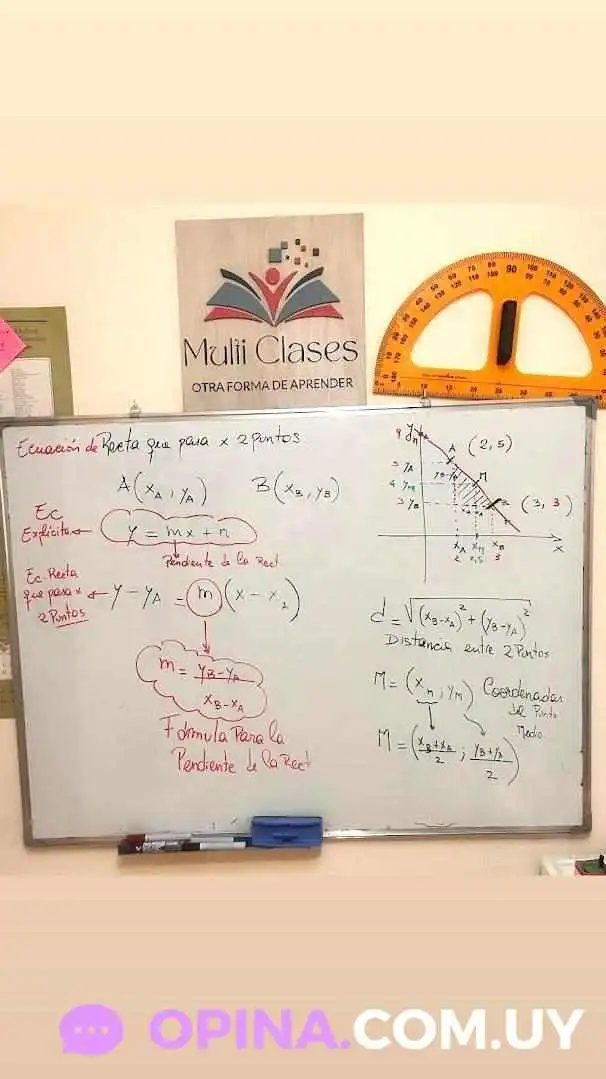 Multi Clases
OTRA FORMA DE APRENDER
Ecuación de Recta que pasa x 2 Puntos
A(x_A, y_A) B(x_B, y_B)
Ec
Explícita
y = mx + n
Pendiente de la Rect
Ec. Recta
que pasa x
2 Puntos
y - y_A = m (x - x_A)
m = y_B - y_A
x_B - x_A
Fórmula Para la
Pendiente de la Rect
y
A (2,5)
5 y_A
M
4 y_M
3 y_B
(3, 3)
x_A x_M x_B
x
2 2,5 3
d = √(x_B - x_A)² + (y_B - y_A)²
Distancia entre 2 Puntos
M = (x_M, y_M) Coordenadas
de Punto
Medio
M = (x_B + x_A / 2 ; y_B + y_A / 2)
90
OPINA.COM.UY